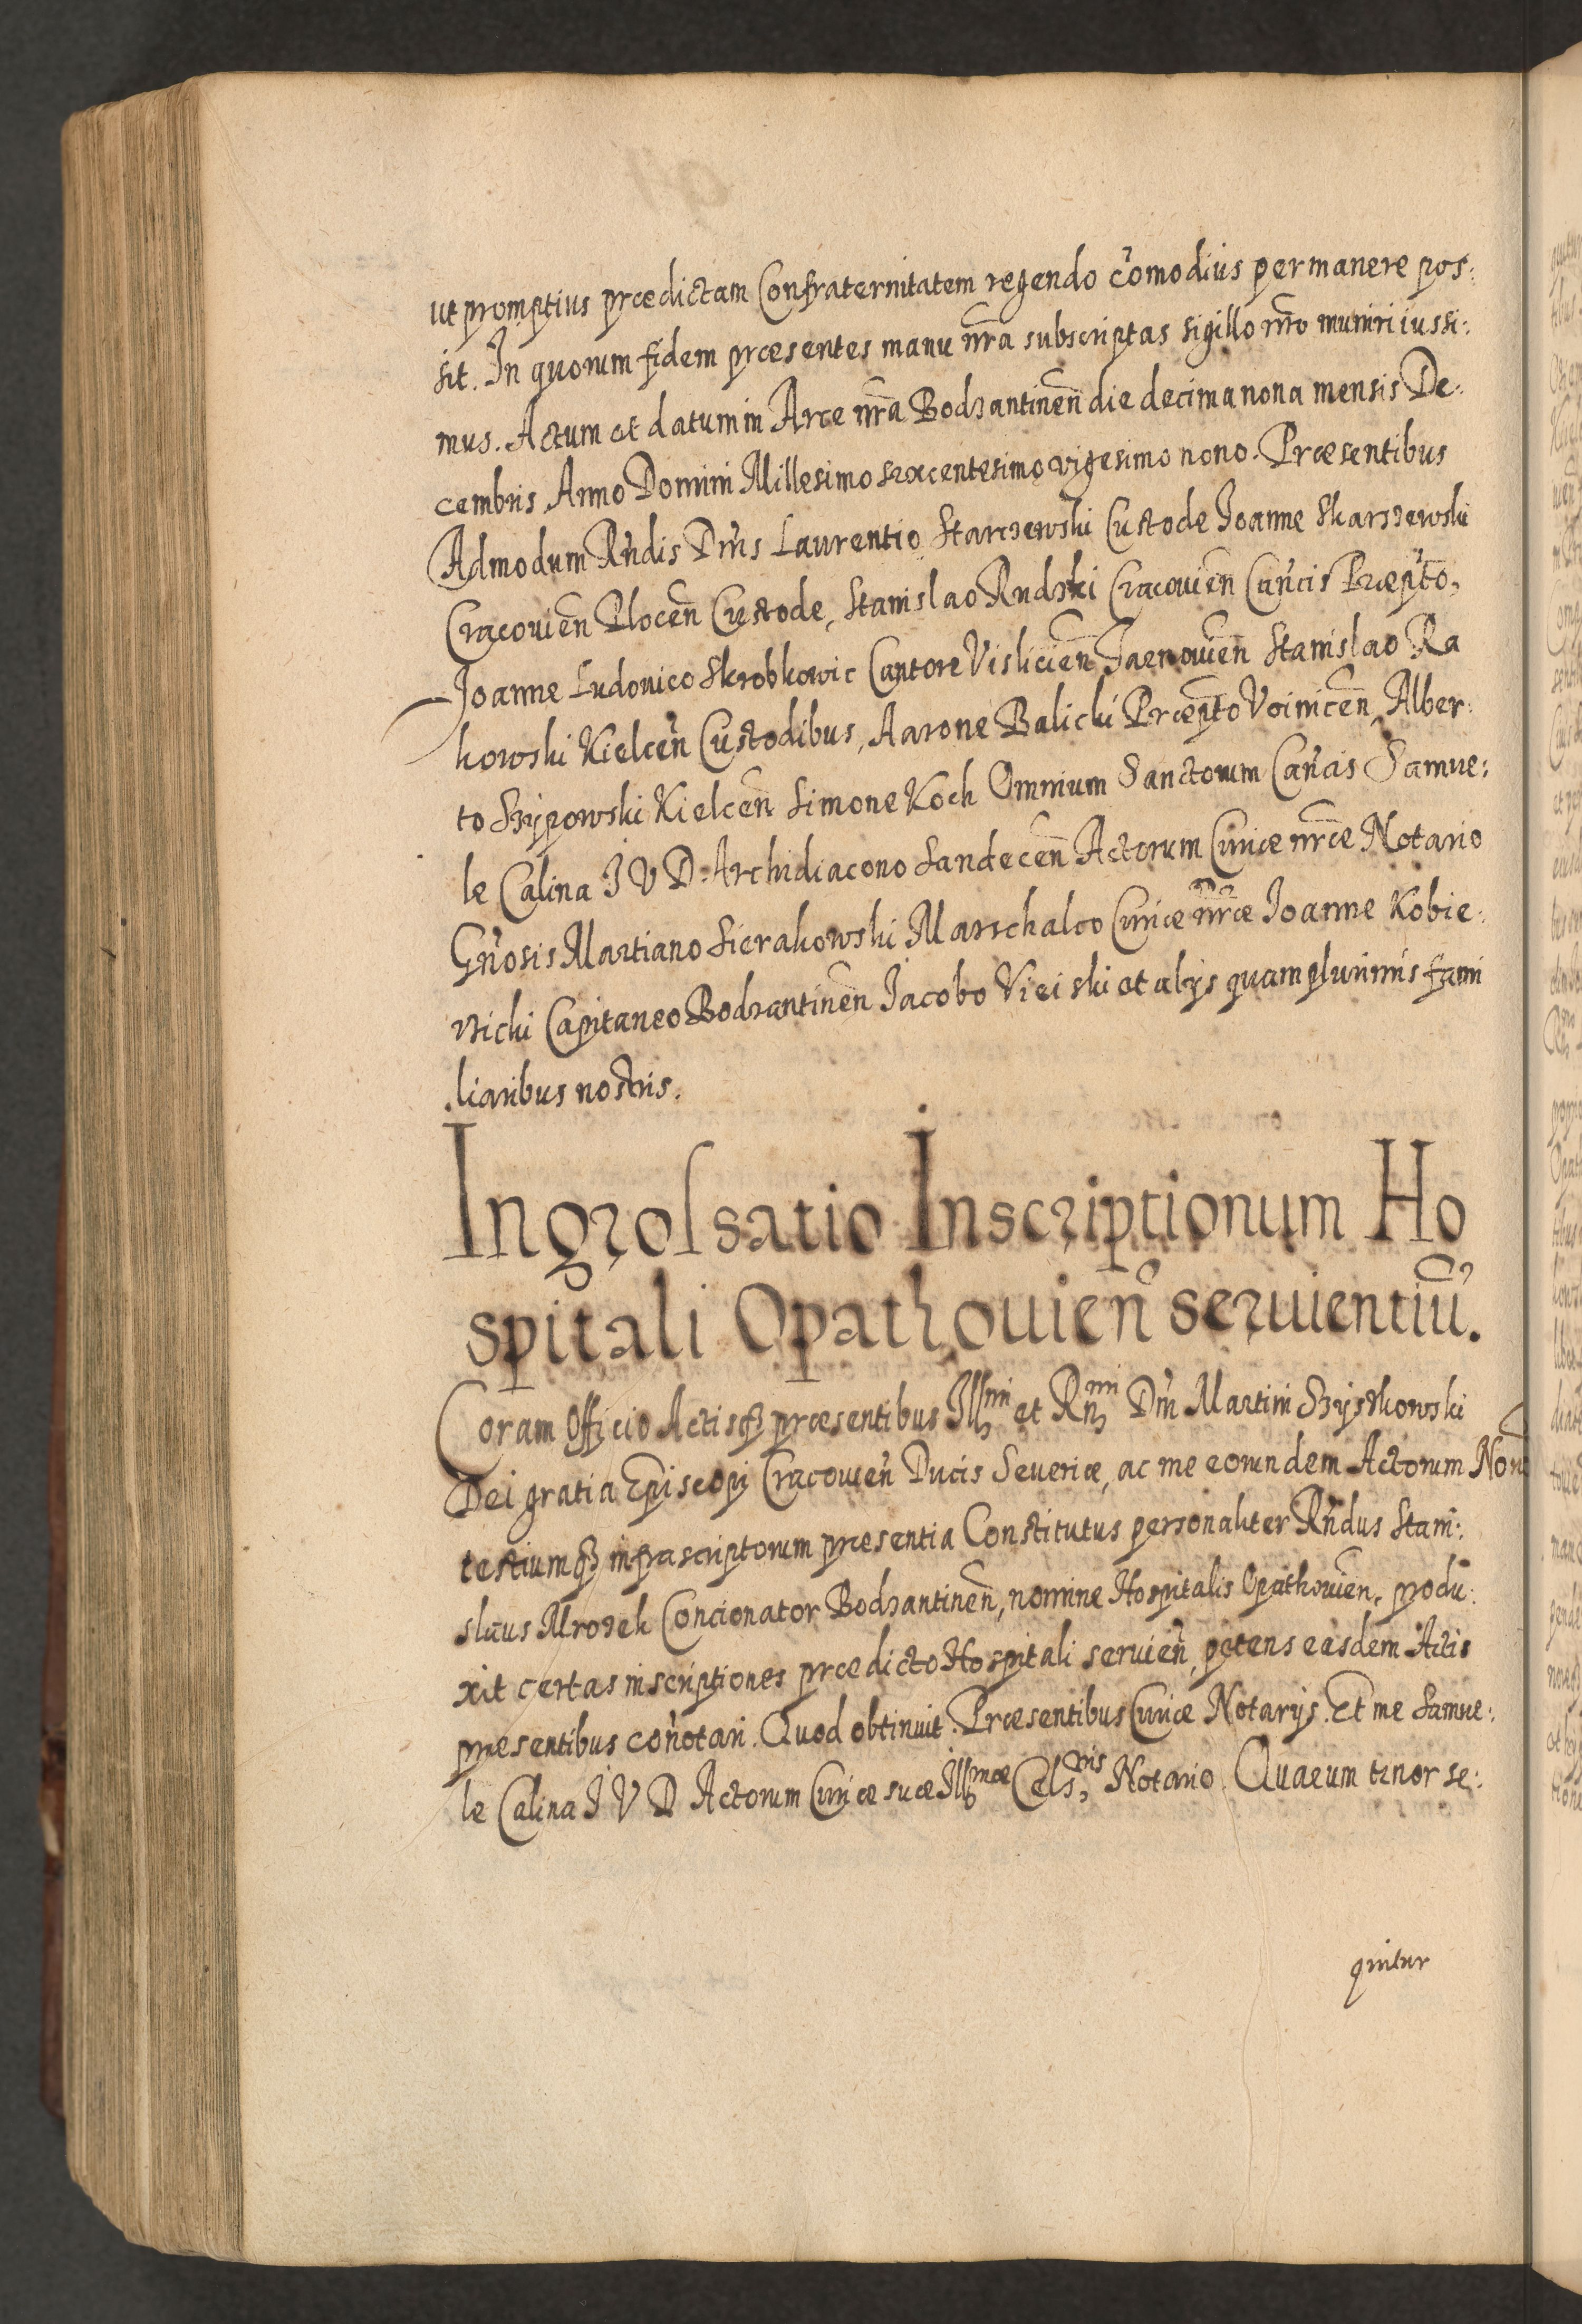 ut promptius prædictam Confraternitatem regendo com̃odius permanere pos:
sit. In quorum fidem præsentes manu nr̃a subscriptas sigillo nr̃o muniri iussi:
mus. Actum et datum in Arce nr̃a Bodzantinen̄ die decima nona mensis De:
cembris Anno Domini Millesimo sexcentesimo vigesimo nono. Præsentibus
Admodum Rn̄dis Dn̄is Laurentio Starczewski Custode Joanne Skarszewski
Cracouien̄ Plocen̄ Custode, Stanislao Rudzki Cracouien̄ Can̄cis Præpt̄o,
Joanne Ludouico Skrobkowic Cantore Vislicien̄ Tarnouien̄ Stanislao Ra
kowski Kielcen̄ Custodibus, Aarone Balicki Præpt̄o Voinicen̄, Alber:
to Szÿpowski Kielcen̄ Simone Koch Omnium Sanctorum Can̄cis Samue:
le Calina J V D. Archidiacono Sandecen̄ Actorum Curiæ nr̃æ Notario
Gn̄osis Martiano Sierakowski Marschalco Curiæ nr̃æ Joanne Kobie:
rzicki Capitaneo Bodzantinen̄ Jacobo Vieiski et alijs quam plurimis fami
liaribus nostris.
Ingrossatio Inscriptionum Ho
spitali Opathouien̄ seruientiū.
Coram Officio Actisq3 præsentibus Illmi et Rndmi Dn̄i Martini Szÿszkowski
Dei gratia Episcopi Cracouien̄ Ducis Seueriæ, ac me eorundem Actorum Not̄
testiumq3 infrascriptorum præsentia Constitutus personaliter Rn̄dus Stani:
slaus Mrozek Concionator Bodzantinen̄, nomine Hospitalis Opathouien̄, produ:
xit certas inscriptiones prædicto Hospitali seruien̄, petens easdem Actis
præsentibus con̄otari. Quod obtinuit. Præsentibus Curiæ Notarÿs. Et me Samue:
le Calina J V D Actorum Curiæ suæ Illmæ Celsnis Notario. Quarum tenor se:
quitur